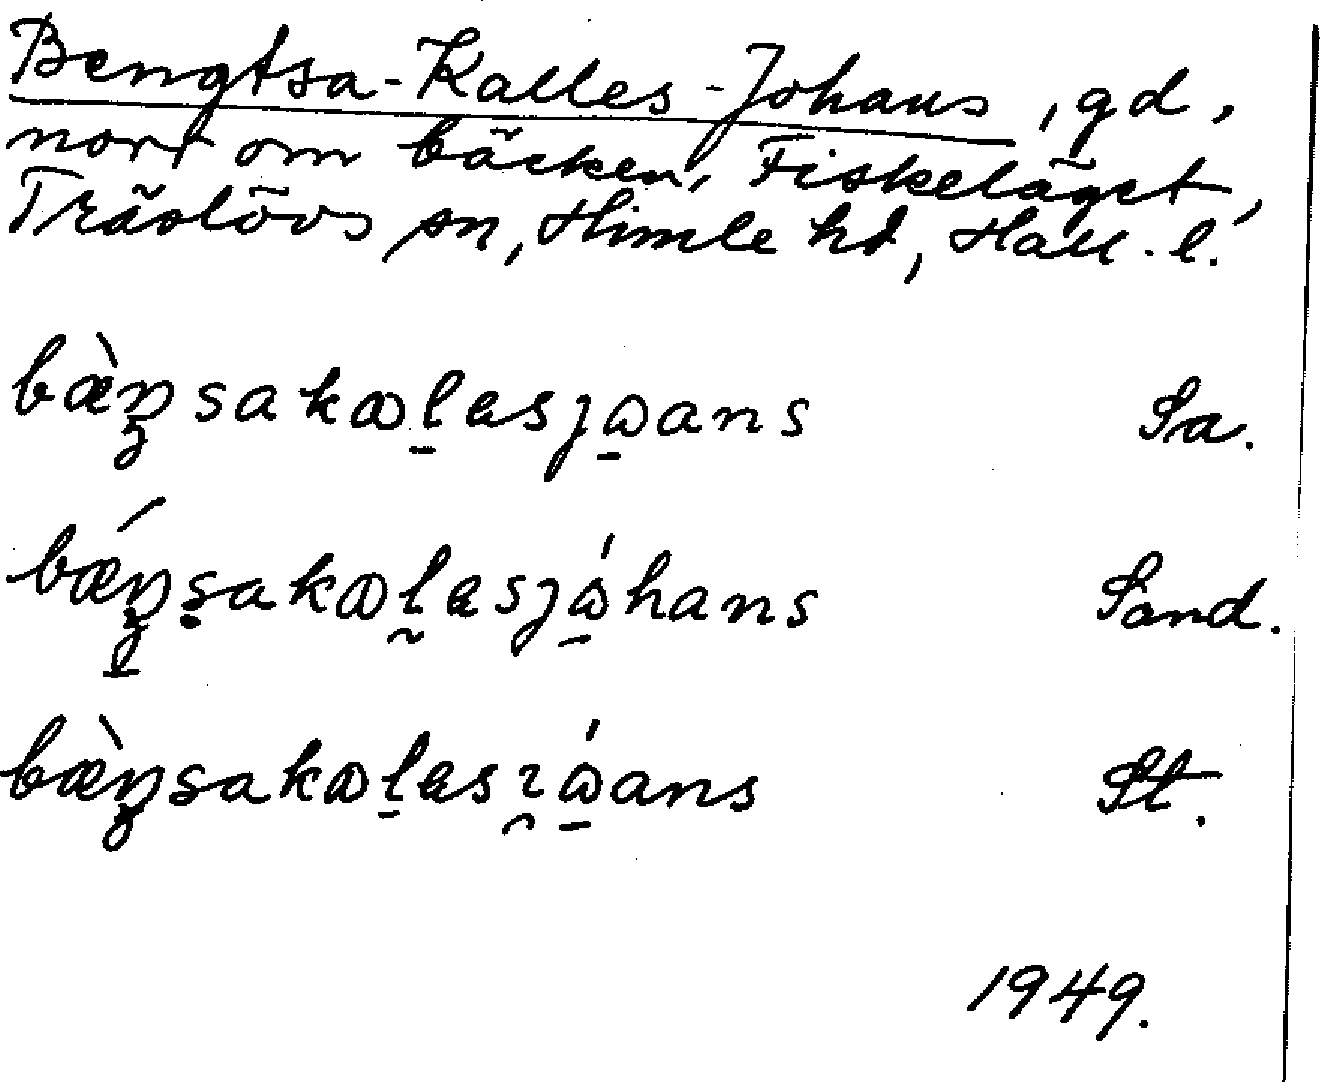 Bengtsa-Kalles-Johans, gd,
norr om bäcken, Fiskeläget,
Träslövs sn, Himle hd, Hall. l.
Sa.
Sand.
St.
1949.